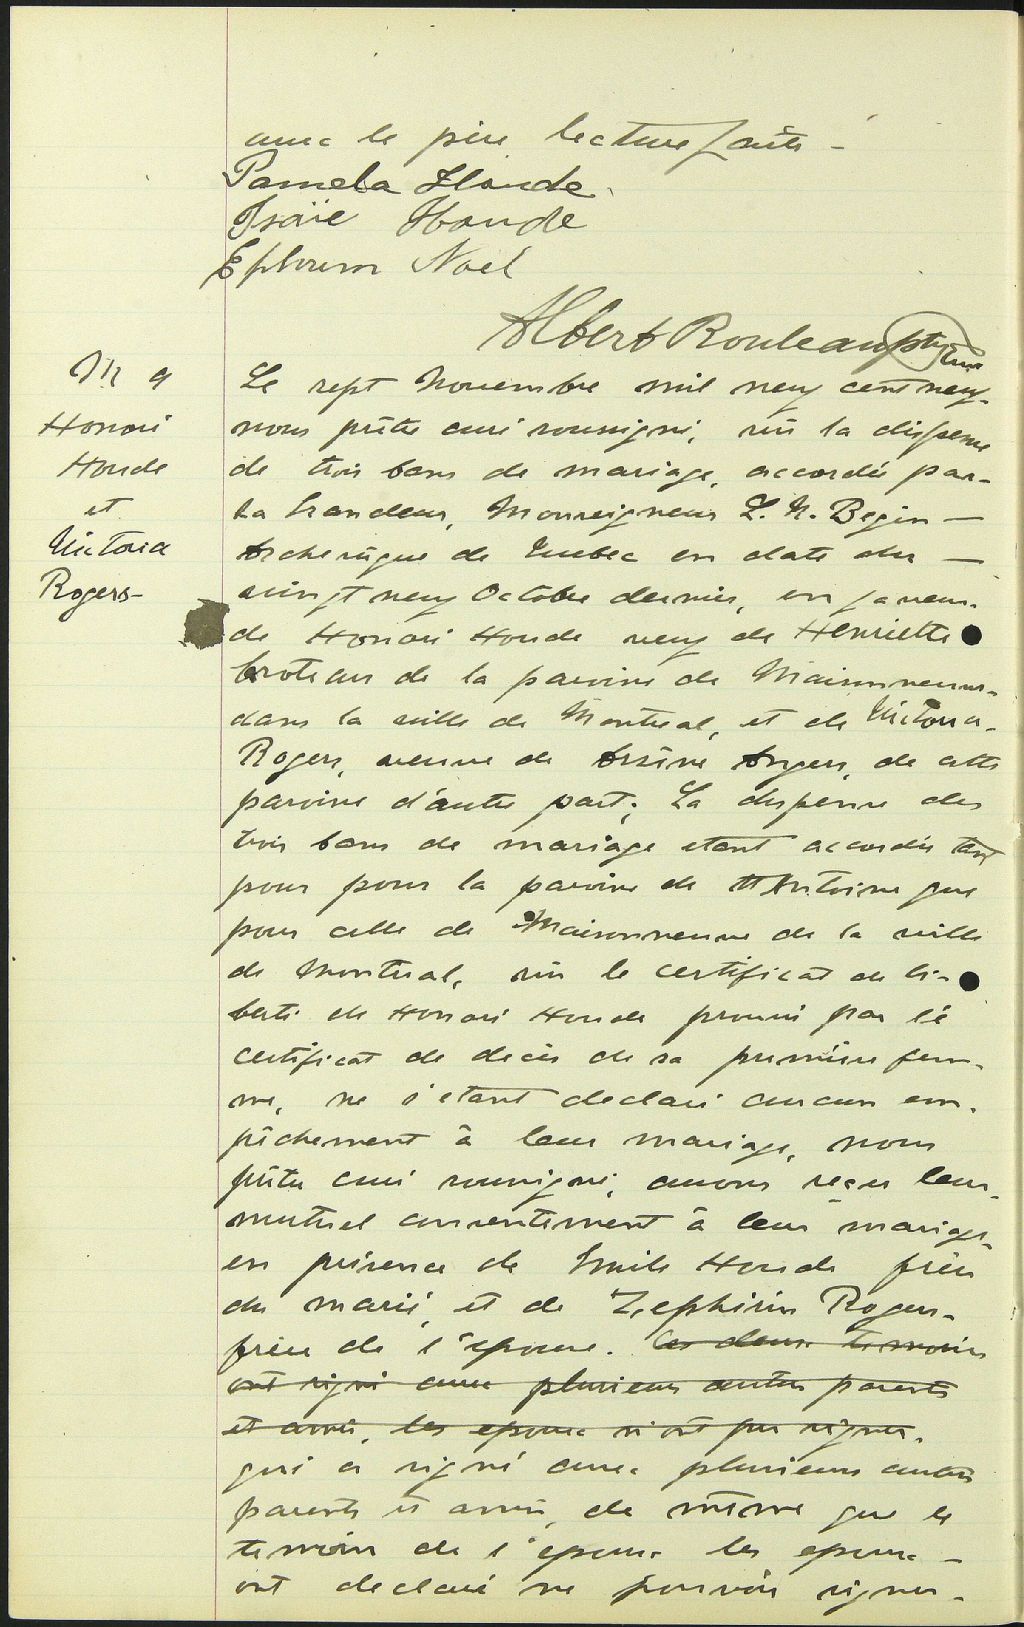 avec le père lecture faite -
Pamela Houde
Isaïe Houde
Ephrem Noël
Albert Rouleau ptre curé
M 9
Honoré
Houde
et
Victoria
Rogers -
Le sept Novembre mil neuf cent neuf -
nous prêtre curé soussigné, vû la dispense
de trois bans de mariage, accordée par -
Sa Grandeur, Monseigneur L. N. Begin -
Archevêque de Quebec en date du -
vingt neuf Octobre dernier, en faveur
de Honoré Houde veuf de Henriette
Croteau de la paroisse de Maisonneuve -
dans la ville de Montreal, et de Victoria -
Rogers, veuve de Arsène Angers, de cette
paroisse d'autre part; La dispense des
trois bans de mariage etant accordée tant
pour pour la paroisse de St Antoine que
pour celle de Maisonneuve de la ville
de Montreal, vû le certificat de li-
berté de Honoré Houde prouvé par le
certificat de decès de sa première fem-
me, ne s'etant declaré aucun em-
pêchement à leur mariage, nous
prêtre curé soussigné, avons reçu leur -
mutuel consentement à leur mariage -
en présence de Emile Houde frère
du marié, et de Zephirin Rogers -
frère de l'épouse. Les deux temoins
ont signé avec plusieurs autres parents
et amis, les epoux n'ont pu signer.
qui a signé avec plusieurs autres
parents et amis, de même que le
temoin de l'epouse les epoux -
ont declaré ne pouvoir signer -